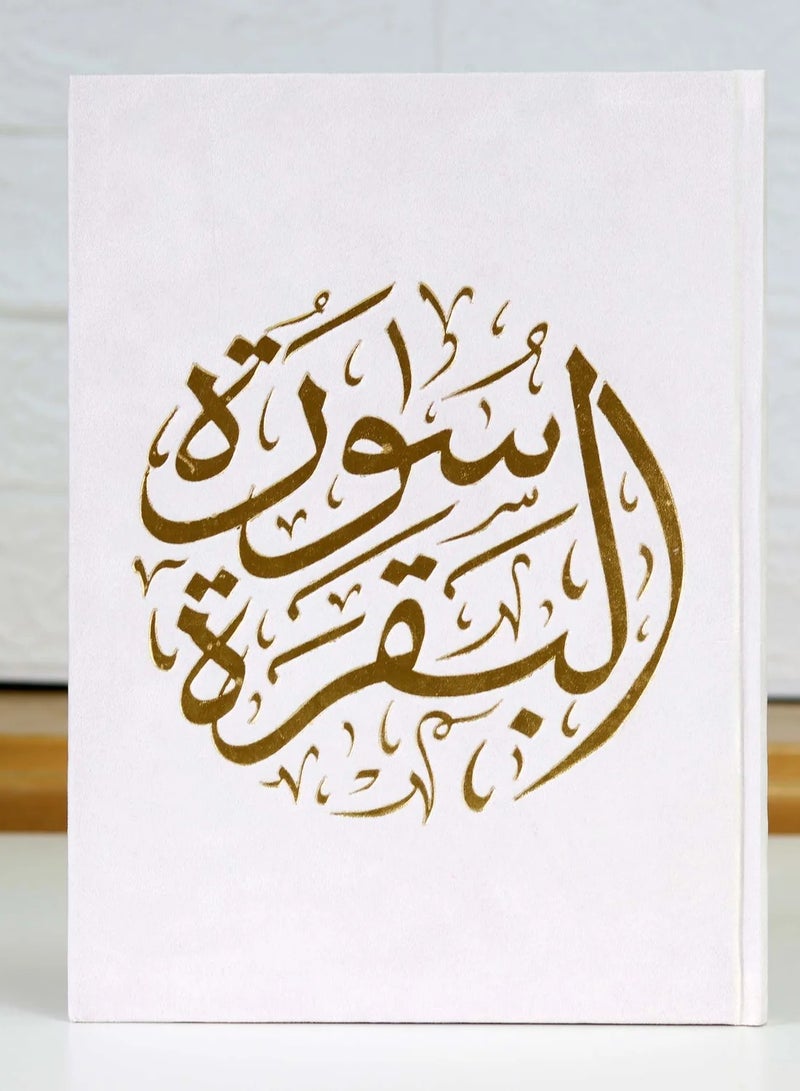 سُورَةُ
البَقَرَةِ